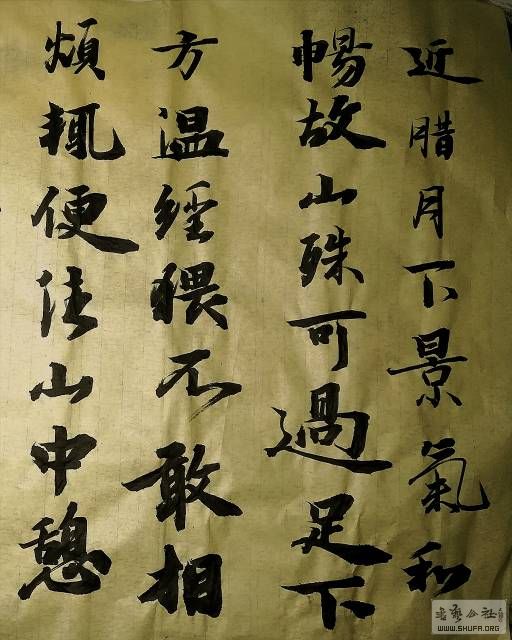 近腊月下景氣和
暢故山殊可過足下
方温經猥不敢相
煩輒便往山中憩
書藝公社
WWW.SHUFA.ORG